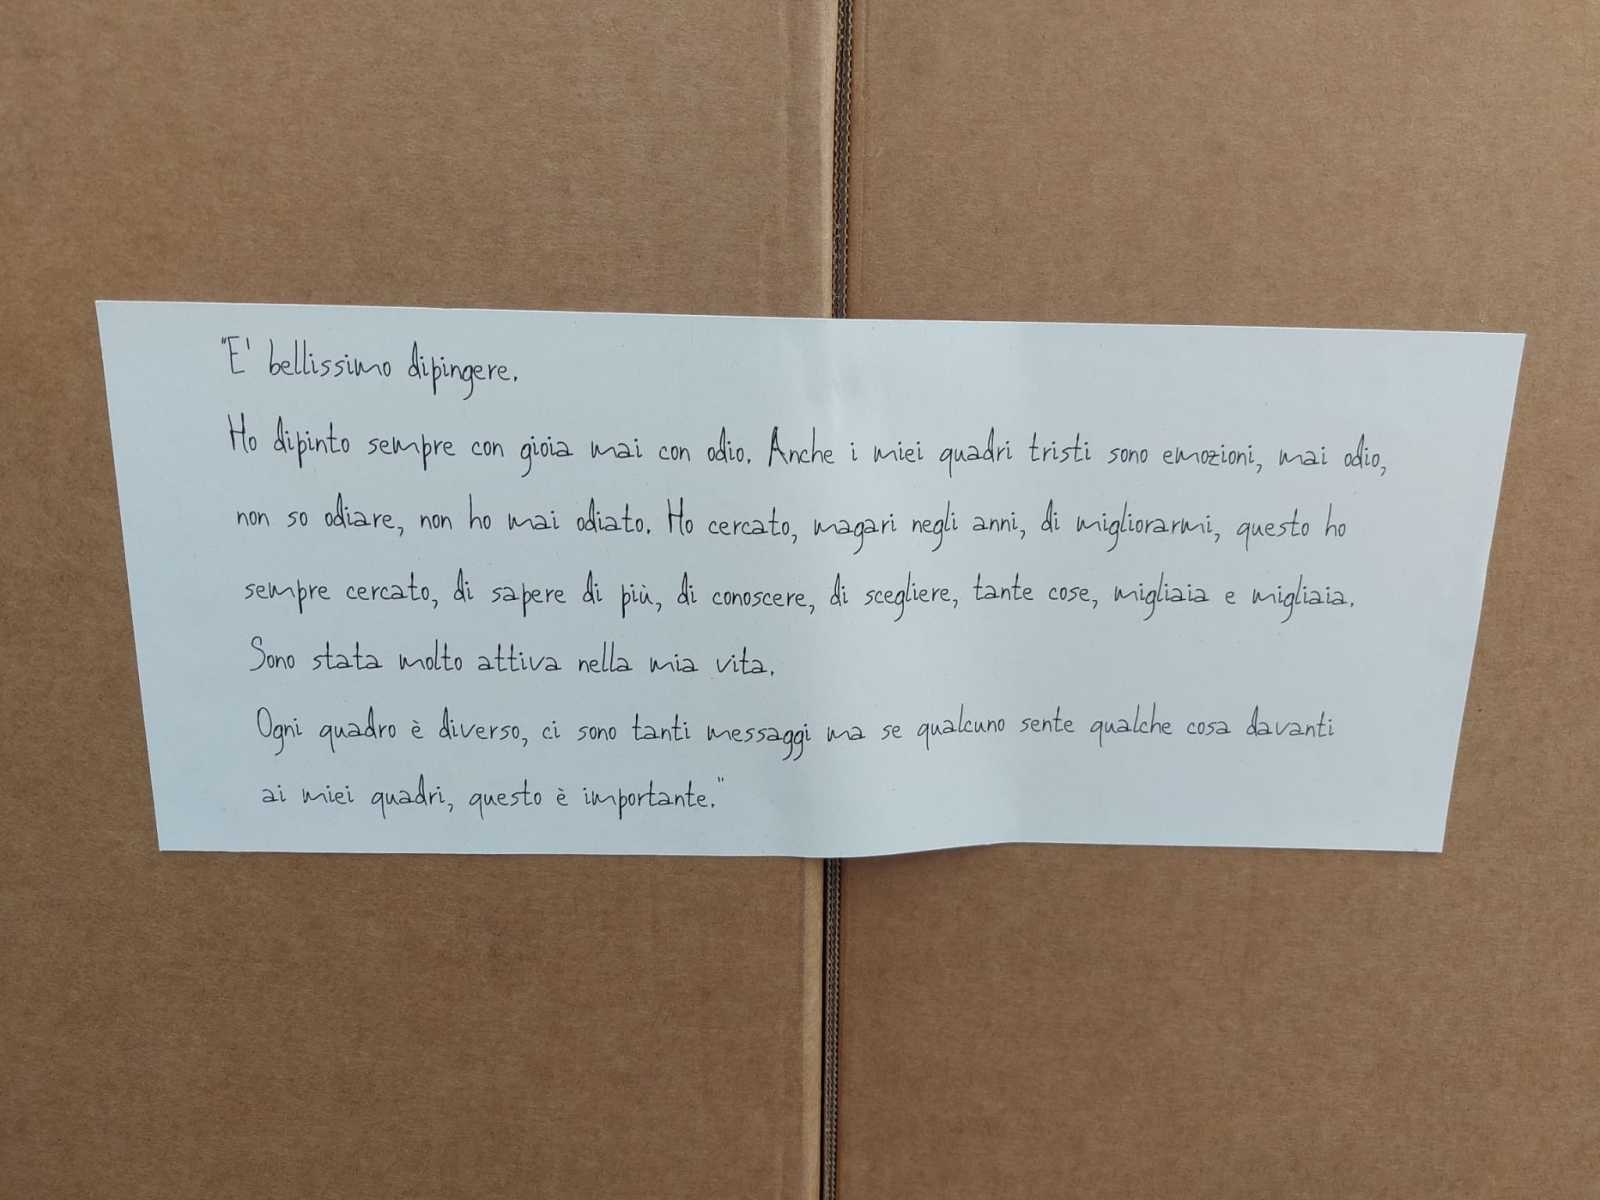 "E' bellissimo dipingere.
Ho dipinto sempre con gioia mai con odio. Anche i miei quadri tristi sono emozioni, mai odio,
non so odiare, non ho mai odiato. Ho cercato, magari negli anni, di migliorarmi, questo ho
sempre cercato, di sapere di più, di conoscere, di scegliere, tante cose, migliaia e migliaia.
Sono stata molto attiva nella mia vita.
Ogni quadro è diverso, ci sono tanti messaggi ma se qualcuno sente qualche cosa davanti
ai miei quadri, questo è importante."